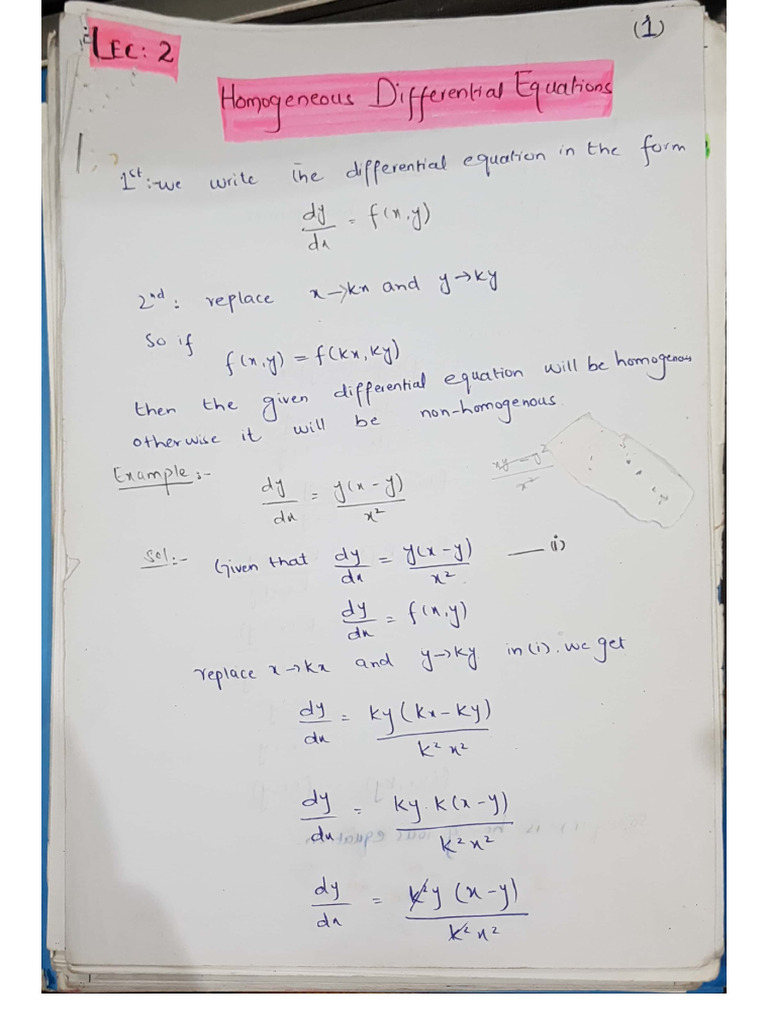 (1)
LEC: 2
Homogeneous Differential Equations
1st :- we write the differential equation in the form
dy/dx = f(x,y)
2nd : replace x→kx and y→ky
So if
f(x,y) = f(kx,ky)
then the given differential equation will be homogenous
otherwise it will be non-homogenous
Example:- dy/dx = y(x-y)/x²
xy-y²/x²
Sol:- Given that dy/dx = y(x-y)/x² —— (i)
dy/dx = f(x,y)
replace x→kx and y→ky in (i). we get
dy/dx = ky(kx-ky)/k²x²
dy/dx = ky.k(x-y)/k²x²
dy/dx = k²y(x-y)/k²x²